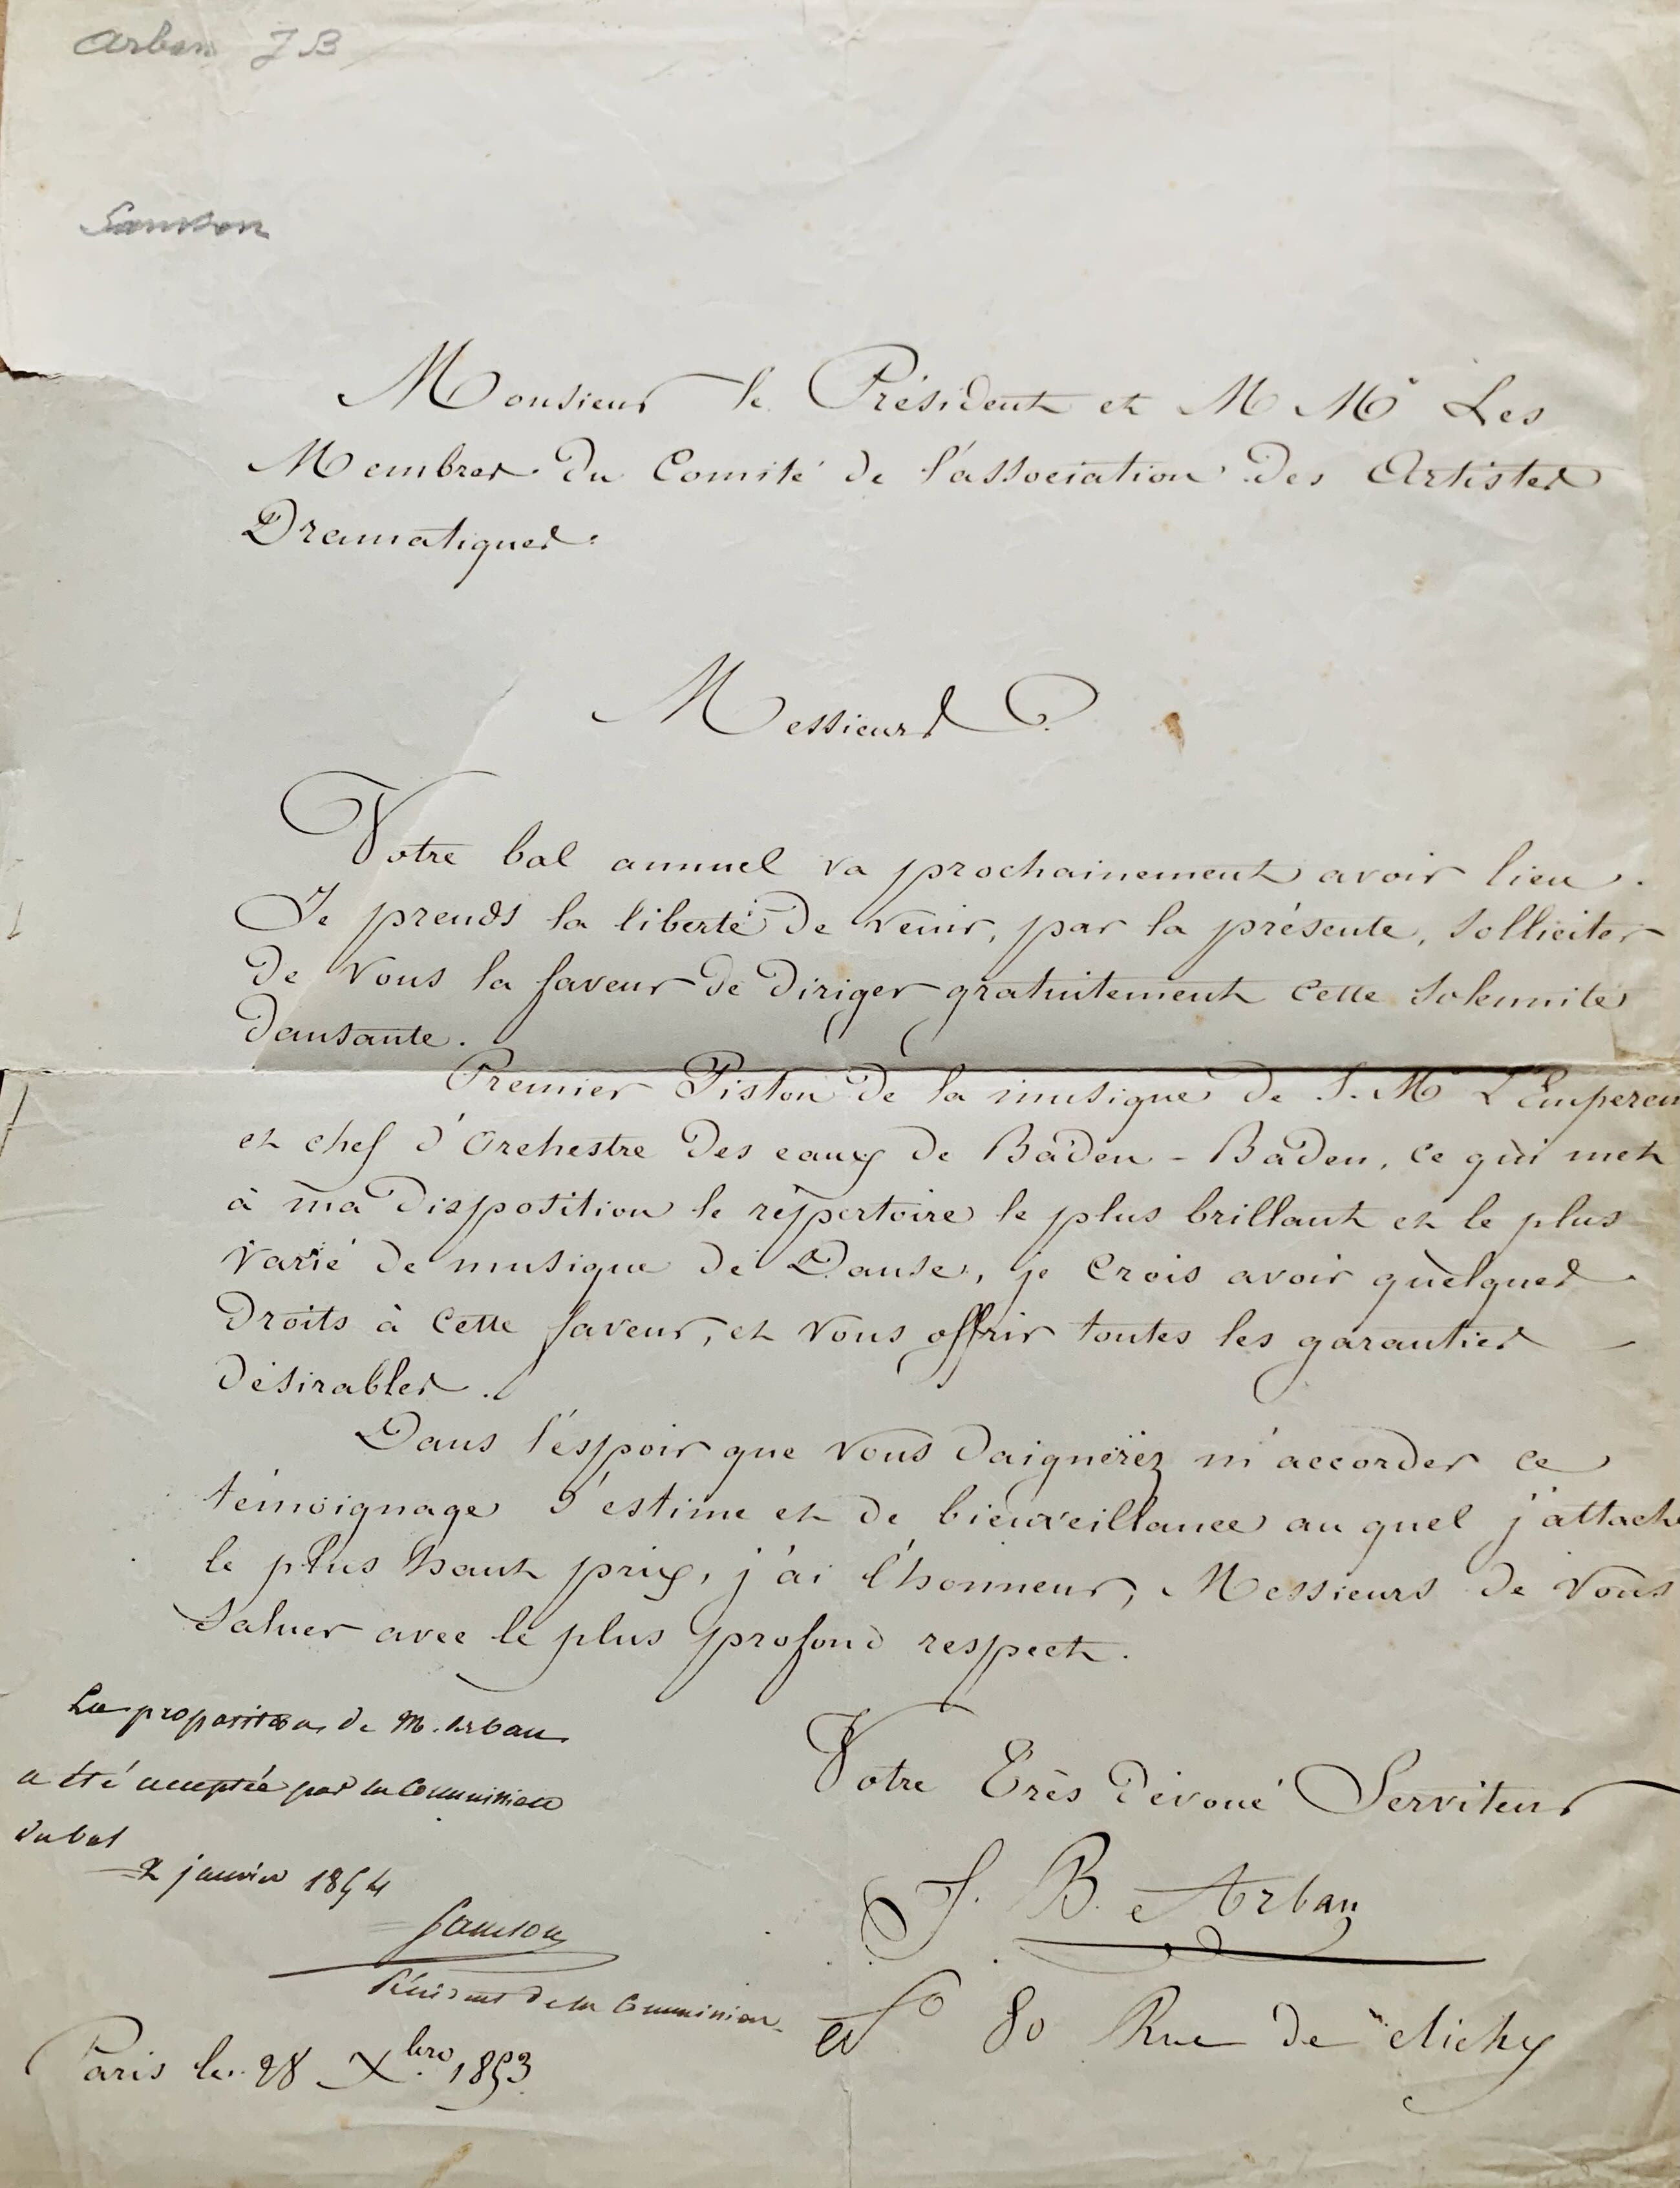 Arban J B
Samson
Monsieur le Président et M Mrs Les
Membres du Comité de l'association des Artistes
Dramatiques.
Messieurs
Votre bal annuel va prochainement avoir lieu.
Je prends la liberté de venir, par la présente, solliciter
de vous la faveur de diriger gratuitement cette solennité
dansante.
Premier Piston de la musique de S. M. L'Empereur
et chef d'Orchestre des eaux de Baden-Baden, ce qui met
à ma disposition le répertoire le plus brillant et le plus
varié de musique de Danse, je crois avoir quelques
droits à cette faveur, et vous offrir toutes les garanties
désirables.
Dans l'éspoir que vous daignerez m'accorder ce
témoignage d'estime et de bienveillance au quel j'attache
le plus haut prix, j'ai l'honneur, Messieurs de vous
saluer avec le plus profond respect.
La proposition de M. Arban
a été acceptée par la Commission
du bal
2 janvier 1854
Samson
Président de la Commission
Votre Très dévoué Serviteur
J. B. Arban
No 80 Rue de Clichy
Paris le 28 Xbre 1853